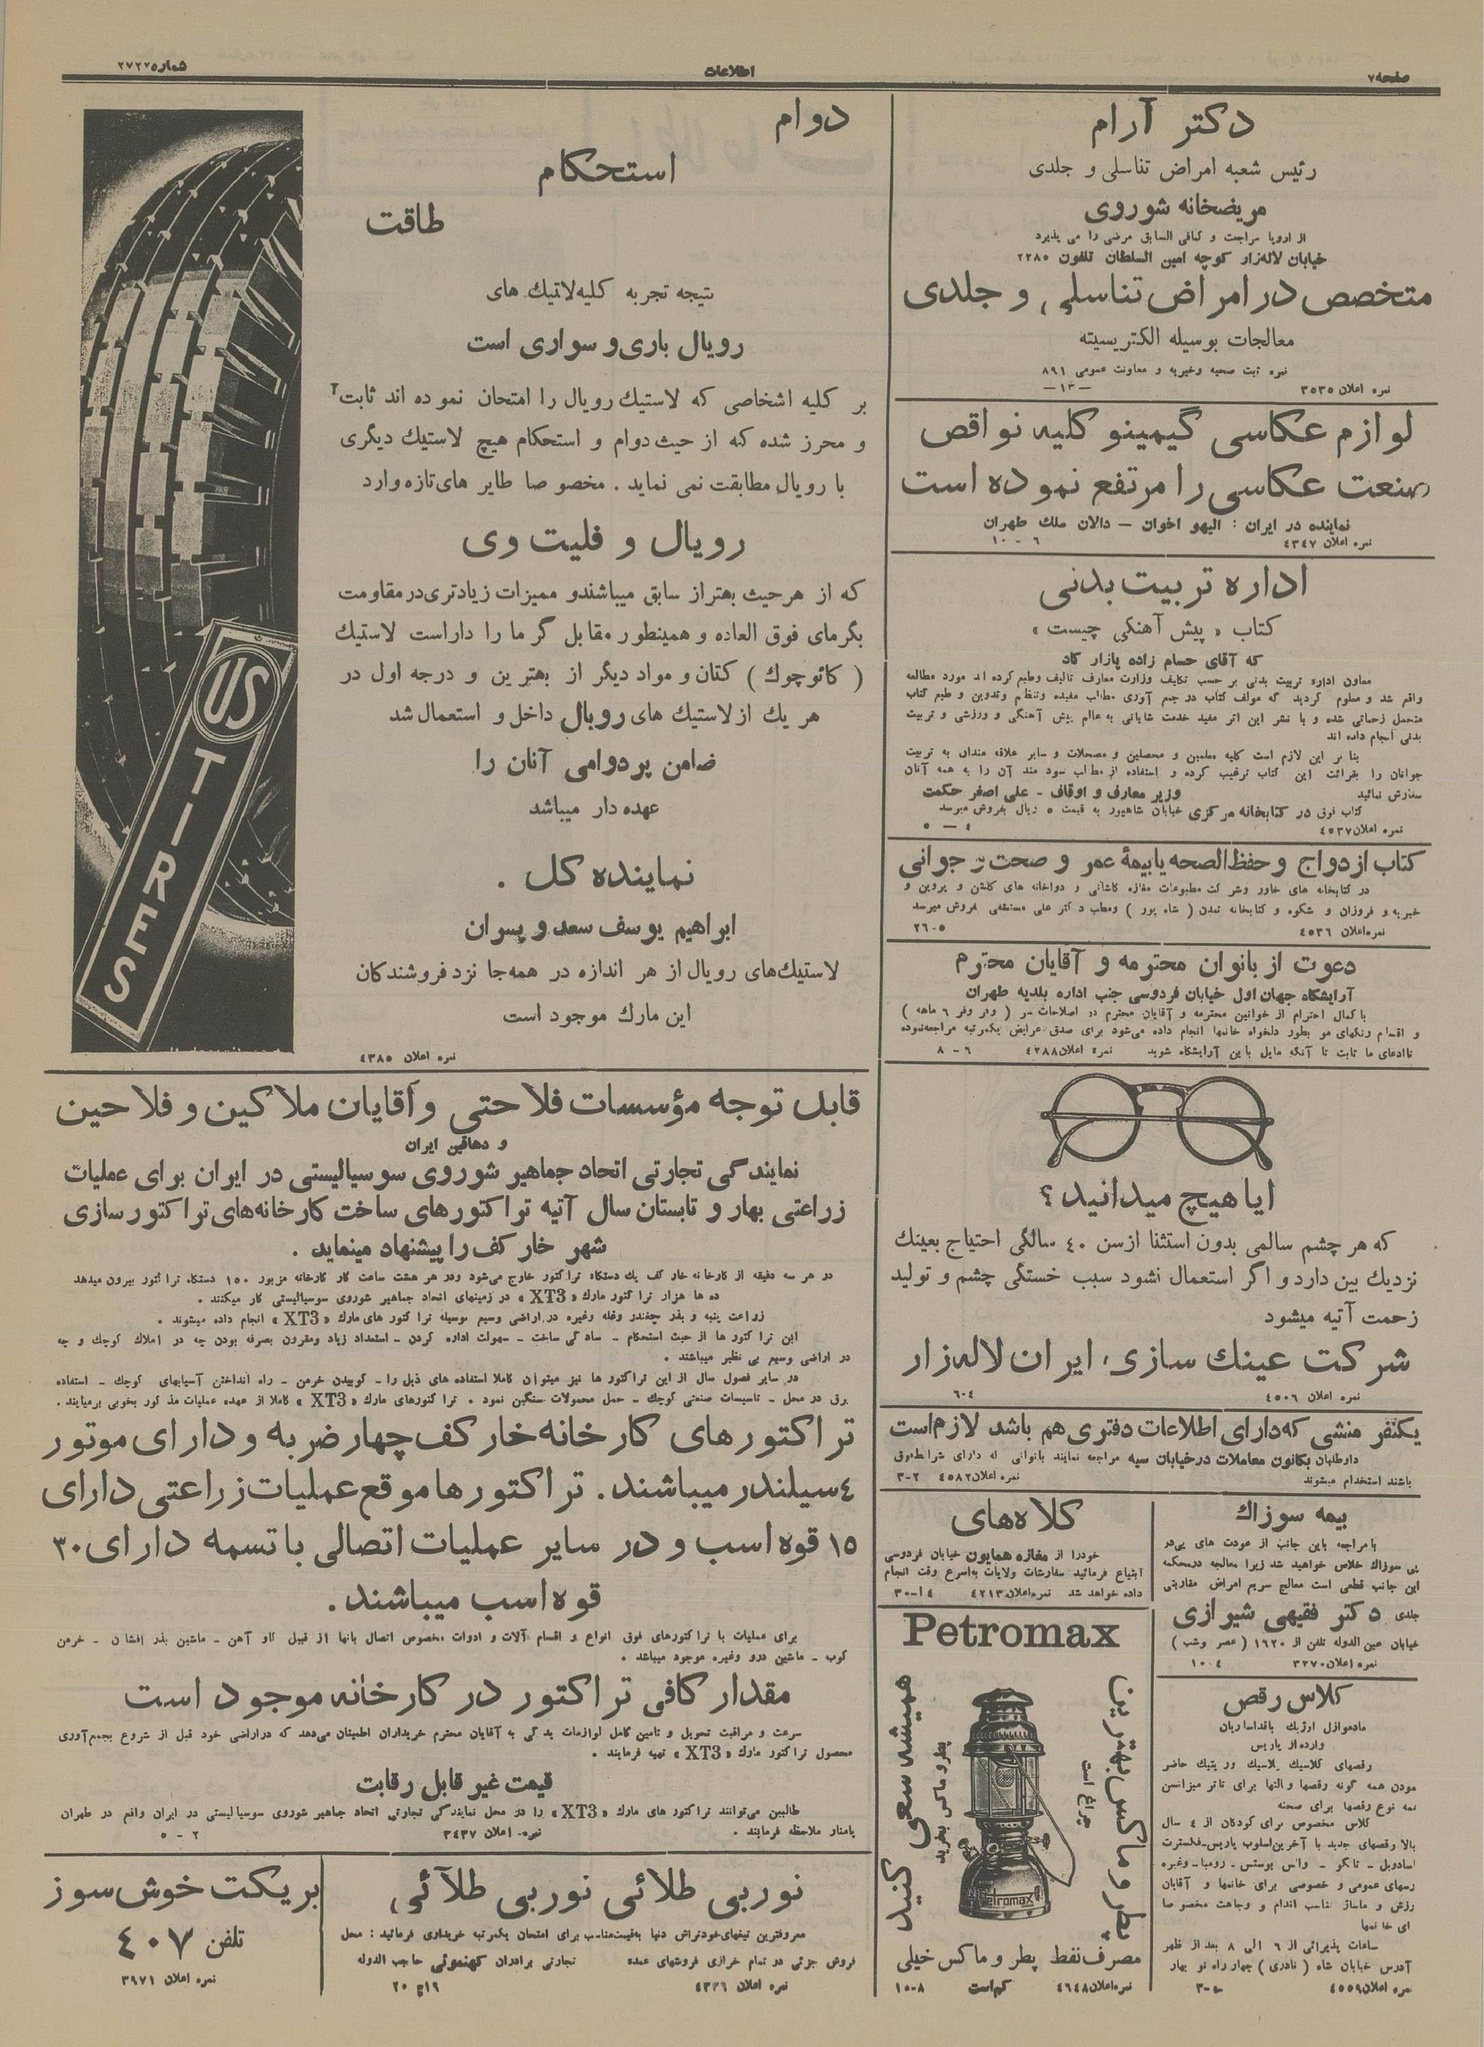 صفحه ۷
اطلاعات
شماره ۲۷۲۷
دکتر آرام
رئیس شعبه امراض تناسلی و جلدی
مریضخانه شوروی
از اروپا مراجعت و کمافی السابق مرضی را می پذیرد
خیابان لاله‌زار کوچه امین السلطان تلفون ۲۲۸۵
متخصص در امراض تناسلی و جلدی
معالجات بوسیله الکتریسیته
نمره ثبت صحیه و خیریه و معاونت عمومی ۸۹۱
نمره اعلان ۳۵۳۵
لوازم عکاسی گیمینو کلیه نواقص
صنعت عکاسی را مرتفع نموده است
نماینده در ایران : الیهو اخوان – دالان ملک طهران
نمره اعلان ۴۳۴۷ ۶ - ۱۰
اداره تربیت بدنی
کتاب « پیش آهنگی چیست »
که آقای حسام زاده پازارگاد
معاون اداره تربیت بدنی بر حسب تکلیف وزارت معارف تالیف و طبع کرده اند مورد مطالعه
واقع شد و معلوم گردید که مولف کتاب در جمع آوری مطالب مفیده و تنظیم و تدوین و طبع کتاب
متحمل زحماتی شده و با نشر این اثر مفید خدمت شایانی به عالم پیش آهنگی و ورزشی و تربیت
بدنی انجام داده اند
بنا بر این لازم است کلیه معلمین و محصلین و محصلات و سایر علاقه مندان به تربیت
جوانان را بقرائت این کتاب ترغیب کرده و استفاده از مطالب سود مند آن را به همه آنان
سفارش نمائید وزیر معارف و اوقاف - علی اصغر حکمت
کتاب فوق در کتابخانه مرکزی خیابان شاهپور به قیمت ۵ ریال بفروش میرسد
نمره اعلان ۴۵۳۷ ۴ – ۵
کتاب ازدواج و حفظ الصحه یا بیمهٔ عمر و صحت و جوانی
در کتابخانه های خاور و شرکت مطبوعات مغازه کاشانی و دواخانه های گلشن و پروین و
خیریه و فروزان و شکوه و کتابخانه تمدن ( شاه پور ) و مطب دکتر علی مستشفی بفروش میرسد
نمره اعلان ۴۵۳۶ ۵-۲۶
دعوت از بانوان محترمه و آقایان محترم
آرایشگاه جهان اول خیابان فردوسی جنب اداره بلدیه طهران
با کمال احترام از خوانین محترمه و آقایان محترم در اصلاحات سر ( و فر ۶ ماهه )
و اقسام رنگهای مو بطور دلخواه خانمها انجام داده می‌شود برای صدق عرایض یکمرتبه مراجعه نموده
تا ادعای ما ثابت تا آنگه مایل باین آرایشگاه شوید نمره اعلان ۴۲۸۸ ۶ - ۸
ایا هیچ میدانید ؟
که هر چشم سالمی بدون استثنا از سن ۴۰ سالگی احتیاج بعینک
نزدیک بین دارد و اگر استعمال نشود سبب خستگی چشم و تولید
زحمت آتیه میشود
شرکت عینک سازی ایران لاله‌زار
نمره اعلان ۴۵۰۶ ۴-۶
یکنفر منشی که دارای اطلاعات دفتری هم باشد لازم است
داوطلبان بکانون معاملات در خیابان سپه مراجعه نمایند بانوانی که دارای شرایط فوق
باشند استخدام میشوند نمره اعلان ۴۵۸۲ ۲-۳
بیمه سوزاک
با مراجعه باین جانب از عودت های پی در
پی سوزاک خلاص خواهید شد زیرا معالجه در محکمه
این جانب قطعی است معالج سریع امراض مقاربتی
جلدی دکتر فقیهی شیرازی
خیابان عین الدوله تلفن از ۱۶۲۰ ( عصر و شب )
نمره اعلان ۳۲۷۰ ۴-۱۰
کلاس رقص
مادموازل اوژنیک باقداساریان
وارده از پاریس
رقصهای کلاسیک پلاسیک و ریتمیک حاضر
نمودن همه گونه رقصها و التها برای تاتر میزانسن
همه نوع رقصها برای صحنه
کلاس مخصوص برای کودکان از ۴ سال
ببالا رقصهای جدید با آخرین اسلوب پاریس - فکسترت
پاسادوبل - تانگو - والس بوستس - رومبا - وغیره
درسهای عمومی و خصوصی برای خانمها و آقایان
ورزش و ماساژ تناسب اندام و وجاهت مخصوصا
برای خانمها
ساعات پذیرائی از ۶ الی ۸ بعد از ظهر
آدرس خیابان شاه ( نادری ) چهار راه نو بهار
نمره اعلان ۴۵۵۹
کلاه‌های
خودرا از مغازه همایون خیابان فردوسی
ابتیاع فرمائید سفارشات ولایات به‌اسرع وقت انجام
داده خواهد شد نمره اعلان ۴۲۱۳ ۱۴-۳۰
Petromax
پطروماکس بهترین
چراغ است
همیشه سعی کنید
پطروماکس بخرید
Petromax
مصرف نفط پطروماکس خیلی
کم است
نمره اعلان ۴۶۴۸ ۸-۱۰
دوام
استحکام
طاقت
نتیجه تجربه کلیه لاتیک های
رویال باری و سواری است
بر کلیه اشخاصی که لاستیک رویال را امتحان نموده اند ثابت
و محرز شده که از حیث دوام و استحکام هیچ لاستیک دیگری
با رویال مطابقت نمی نماید . مخصوصا طایر های تازه وارد
رویال و فلیت وی
که از هر حیث بهتر از سابق میباشند و ممیزات زیادتری در مقاومت
بگرمای فوق العاده و همینطور مقابل گرما را داراست لاستیک
( کائوچوک ) کتان و مواد دیگر از بهترین و درجه اول در
هر یک از لاستیک های رویال داخل و استعمال شد
ضامن پردوامی آنان را
عهده دار میباشد
نماینده کل .
ابراهیم یوسف سعد و پسران
لاستیک‌های رویال از هر اندازه در همه‌جا نزد فروشندگان
این مارک موجود است
نمره اعلان ۴۳۸۵
US TIRES
قابل توجه مؤسسات فلاحتی و آقایان ملاکین و فلاحین
و دهاقین ایران
نمایندگی تجارتی اتحاد جماهیر شوروی سوسیالیستی در ایران برای عملیات
زراعتی بهار و تابستان سال آتیه تراکتورهای ساخت کارخانه‌های تراکتورسازی
شهر خارکف را پیشنهاد مینماید .
در هر سه دقیقه از کارخانه خارکف یک دستگاه تراکتور خارج می‌شود و در هر هشت ساعت کار کارخانه مزبور ۱۵۰ دستگاه تراکتور بیرون میدهد
ده ها هزار تراکتور مارک «XT3» در زمینهای اتحاد جماهیر شوروی سوسیالیستی کار میکنند .
زراعت پنبه و بذر چغندر و غله و غیره در اراضی وسیع بوسیله تراکتور های مارک «XT3» انجام داده میشوند .
این تراکتور ها از حیث استحکام - سادگی ساخت - سهولت اداره کردن - استعداد زیاد و مقرون بصرفه بودن چه در املاک کوچک و چه
در اراضی وسیع بی نظیر میباشند .
در سایر فصول سال از این تراکتور ها نیز میتوان کاملا استفاده های ذیل را - کوبیدن خرمن - راه انداختن آسیابهای کوچک - استفاده
برق در محل - تاسیسات صنعتی کوچک - حمل محمولات سنگین نمود . تراکتورهای مارک «XT3» کاملا از عهده عملیات مذکور بخوبی برمیایند .
تراکتورهای کارخانه خارکف چهار ضربه و دارای موتور
۴ سیلندر میباشند . تراکتورها موقع عملیات زراعتی دارای
۱۵ قوه اسب و در سایر عملیات اتصالی با تسمه دارای ۳۰
قوه اسب میباشند .
برای عملیات با تراکتورهای فوق انواع و اقسام آلات و ادوات مخصوص اتصال بانها از قبیل گاو آهن - ماشین بذر افشان - خرمن
کوب - ماشین درو وغیره موجود میباشد .
مقدار کافی تراکتور در کارخانه موجود است
سرعت و مراقبت تحویل و تامین کامل لوازمات یدگی به آقایان محترم خریداران اطمینان می‌دهد که در اراضی خود قبل از شروع بجمع آوری
محصول تراکتور مارک «XT3» تهیه فرمایند .
قیمت غیر قابل رقابت
طالبین می‌توانند تراکتور های مارک «XT3» را در محل نمایندگی تجارتی اتحاد جماهیر شوروی سوسیالیستی در ایران واقع در طهران
پامنار ملاحظه فرمایند . نمره اعلان ۳۴۳۷ ۲ - ۵
نوربی طلائی نوربی طلائی
معروفترین تیغهای خودتراش دنیا به‌قیمت مناسب برای امتحان یکمرتبه خریداری فرمائید : محل
فروش جزئی در تمام خرازی فروشهای عمده تجارتی برادران کهنموئی حاجب الدوله
نمره اعلان ۴۳۳۶
بریکت خوش سوز
تلفن ۴۰۷
نمره اعلان ۳۹۷۱